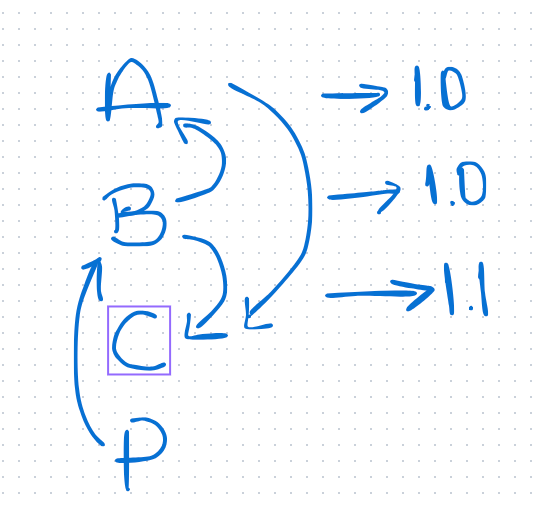 A → 1.0
B → 1.0
C → 1.1
P